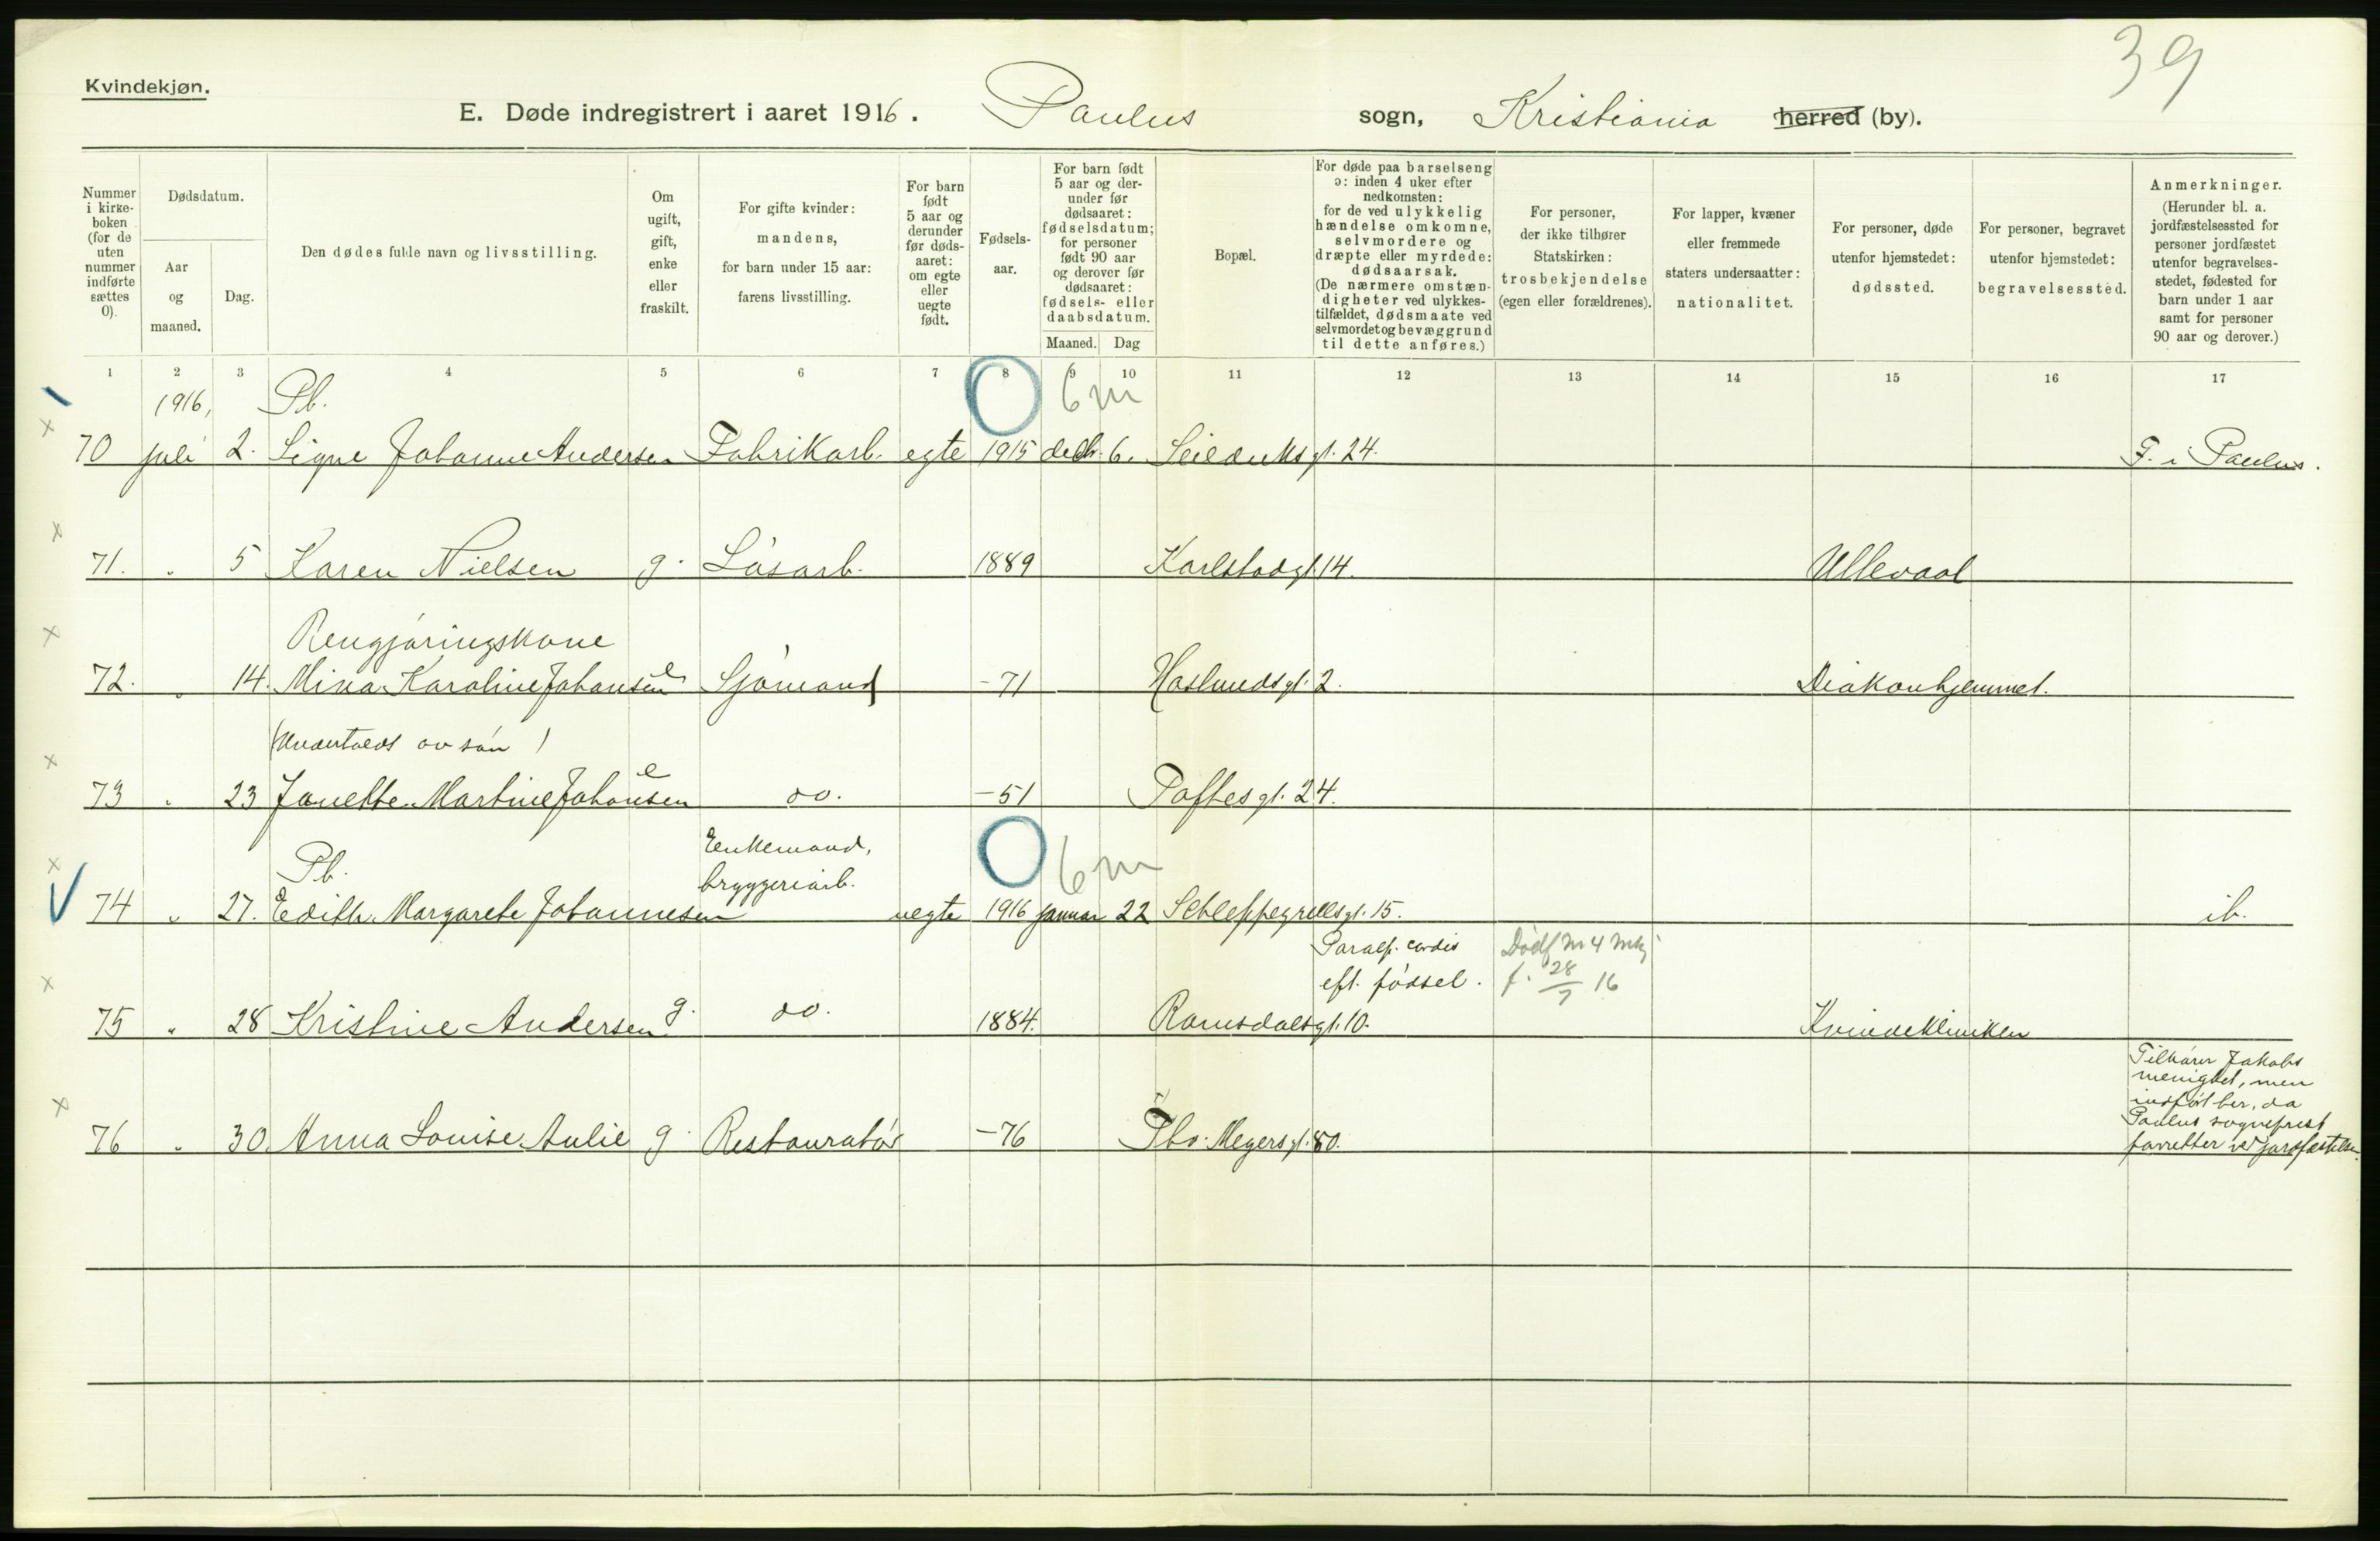 39
Kvindekjøn.
E. Døde indregistrert i aaret 1916. Paulus sogn, Kristiania herred (by).
Nummer i kirke-boken (for de uten nummer indførte sættes 0).
Dødsdatum.
Aar og maaned.
Dag.
Den dødes fulde navn og livsstilling.
Om ugift, gift, enke eller fraskilt.
For gifte kvinder: mandens, for barn under 15 aar: farens livsstilling.
For barn født 5 aar og derunder før døds-aaret: om egte eller uegte født.
Fødsels-aar.
For barn født 5 aar og der-under før dødsaaret: fødselsdatum; for personer født 90 aar og derover før dødsaaret: fødsels- eller daabsdatum.
Maaned. Dag
Bopæl.
For døde paa barselseng ɔ: inden 4 uker efter nedkomsten: for de ved ulykkelig hændelse omkomne, selvmordere og dræpte eller myrdede: dødsaarsak. (De nærmere omstæn-digheter ved ulykkes-tilfældet, dødsmaate ved selvmordet og bevæggrund til dette anføres.)
For personer, der ikke tilhører Statskirken: trosbekjendelse (egen eller forældrenes).
For lapper, kvæner eller fremmede staters undersaatter: nationalitet.
For personer, døde utenfor hjemstedet: dødssted.
For personer, begravet utenfor hjemstedet: begravelsessted.
Anmerkninger. (Herunder bl. a. jordfæstelsessted for personer jordfæstet utenfor begravelses-stedet, fødested for barn under 1 aar samt for personer 90 aar og derover.)
1 2 3 4 5 6 7 8 9 10 11 12 13 14 15 16 17
1916, Pb. 6 m
70 juli 2. Signe Johanne Andersen Fabrikarb. egte 1915 decbr. 6. Seilduksgt. 24. F. i Paulus.
71. " 5 Karen Nielsen g. Løsarb. 1889 Karlstadgt. 14. Ullevaal
Rengjøringskone
72. " 14. Mina Karoline Johansen e Sjømand -71 Haslundsgt. 2. Diakonhjemmet.
(Underholdt av søn)
73 " 23 Janette Martine Johansen e do. -51 Toftesgt. 24.
Pb. Enkemand, bryggeriarb. 6 m
74 " 27. Edith Margarete Johannesen uegte 1916 januar 22 Schleppegrellsgt. 15. ib.
Paralys. cordis eft. fødsel. Dødf m 4 mk f. 28/7 16
75 " 28 Kristine Andersen g. do. 1884. Romsdalsgt. 10. Kvindekliniken
76 " 30. Anna Louise Aulie g. Restauratør -76 Thv. Meyersgt. 80. Tilhører Jakobs
menighet, men
indført her, da
Paulus sogneprest
forretter ved jordfæstelse.